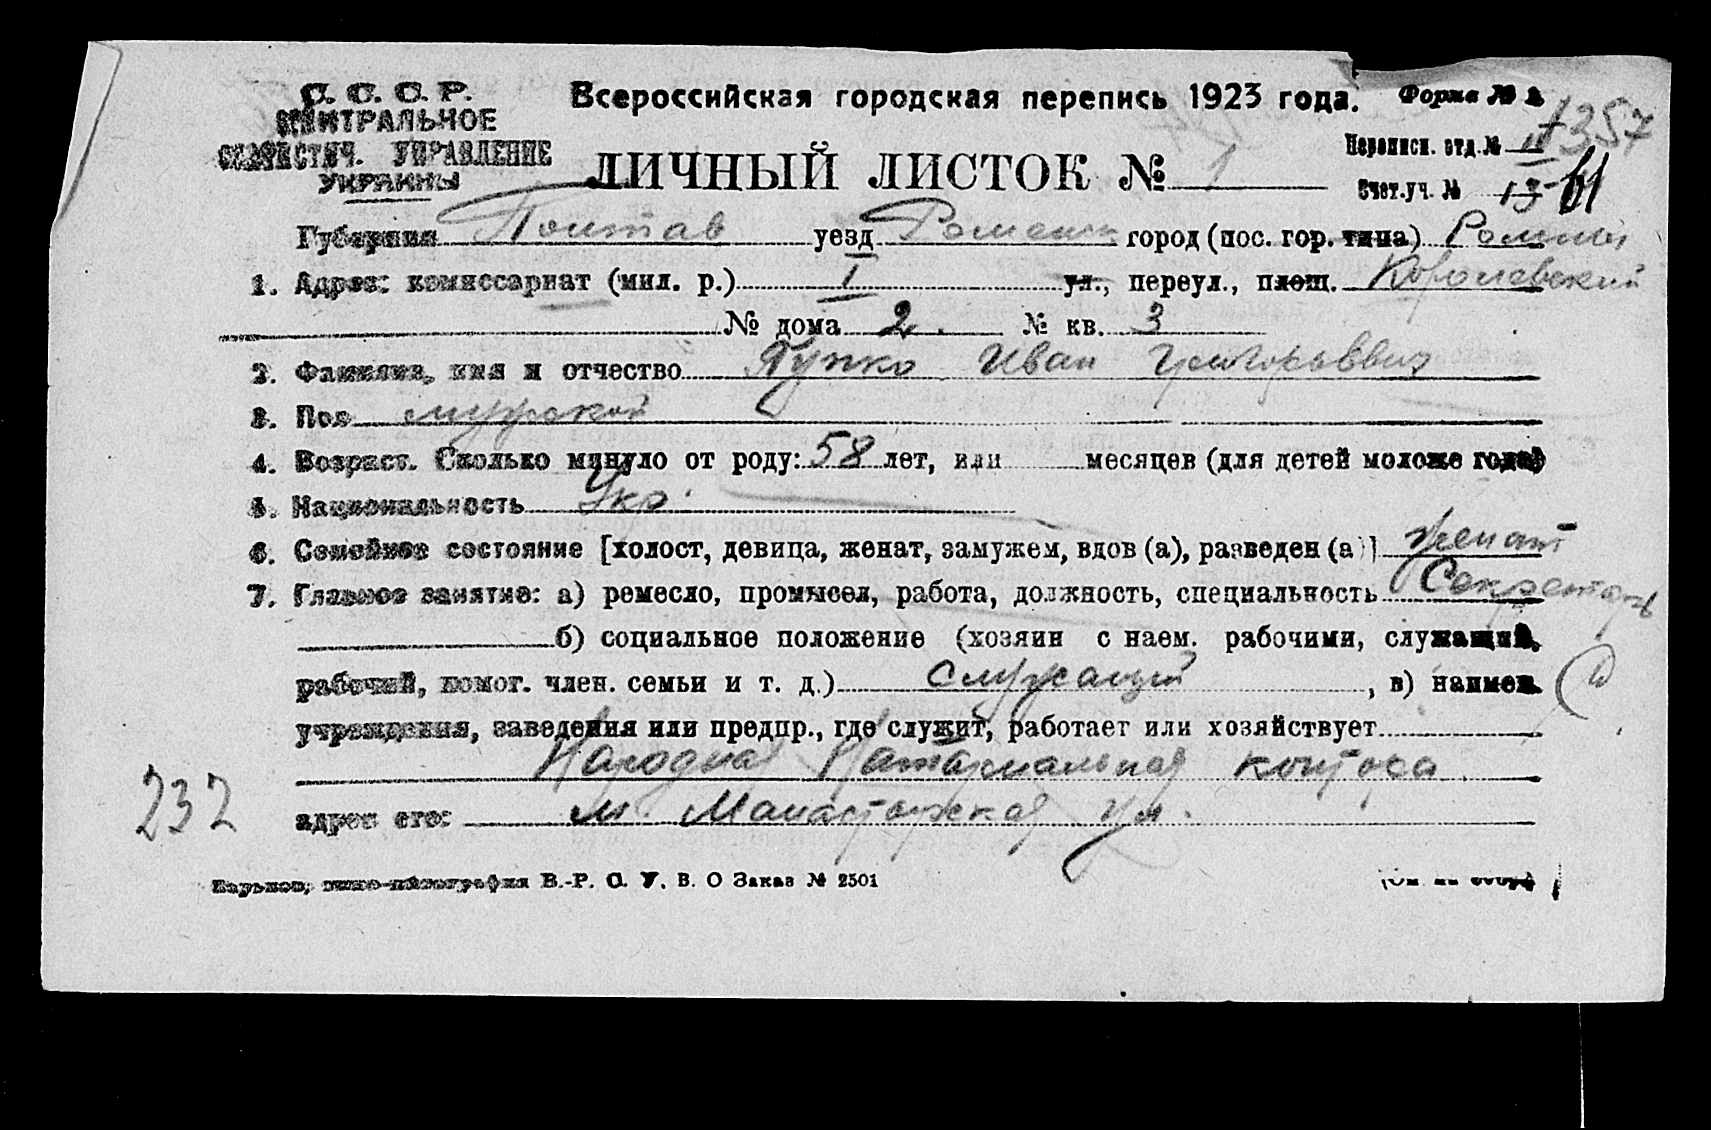 С. С. С. Р.
ЦЕНТРАЛЬНОЕ
СТАТИСТИЧ. УПРАВЛЕНИЕ
УКРАИНЫ
Всероссийская городская перепись 1923 года.
Форма № 2
1357
Переписн. отд. № II
ЛИЧНЫЙ ЛИСТОК № 1
Счет. уч. № 13 61
Губерния Полтав уезд Роменск город (пос. гор. типа) Ромны
1. Адрес: комиссариат (мил. р.) I ул., переул., площ. Королевский
№ дома 2. № кв. 3
2. Фамилия, имя и отчество Пупко Иван Григорьевич
3. Пол мужской
4. Возраст. Сколько минуло от роду: 58 лет, или месяцев (для детей моложе года)
5. Национальность Укр.
6. Семейное состояние [холост, девица, женат, замужем, вдов (а), разведен (а)] женат
7. Главное занятие: а) ремесло, промысел, работа, должность, специальность Секретарь
б) социальное положение (хозяин с наем. рабочими, служащий,
рабочий, помог. член. семьи и т. д.) служащий, в) наимен.
учреждения, заведения или предпр., где служит, работает или хозяйствует
Народная Натариальная контора
адрес его: М. Манастырская ул.
232
Харьков, типо-литография В.-Р. С. У. В. О Заказ № 2501